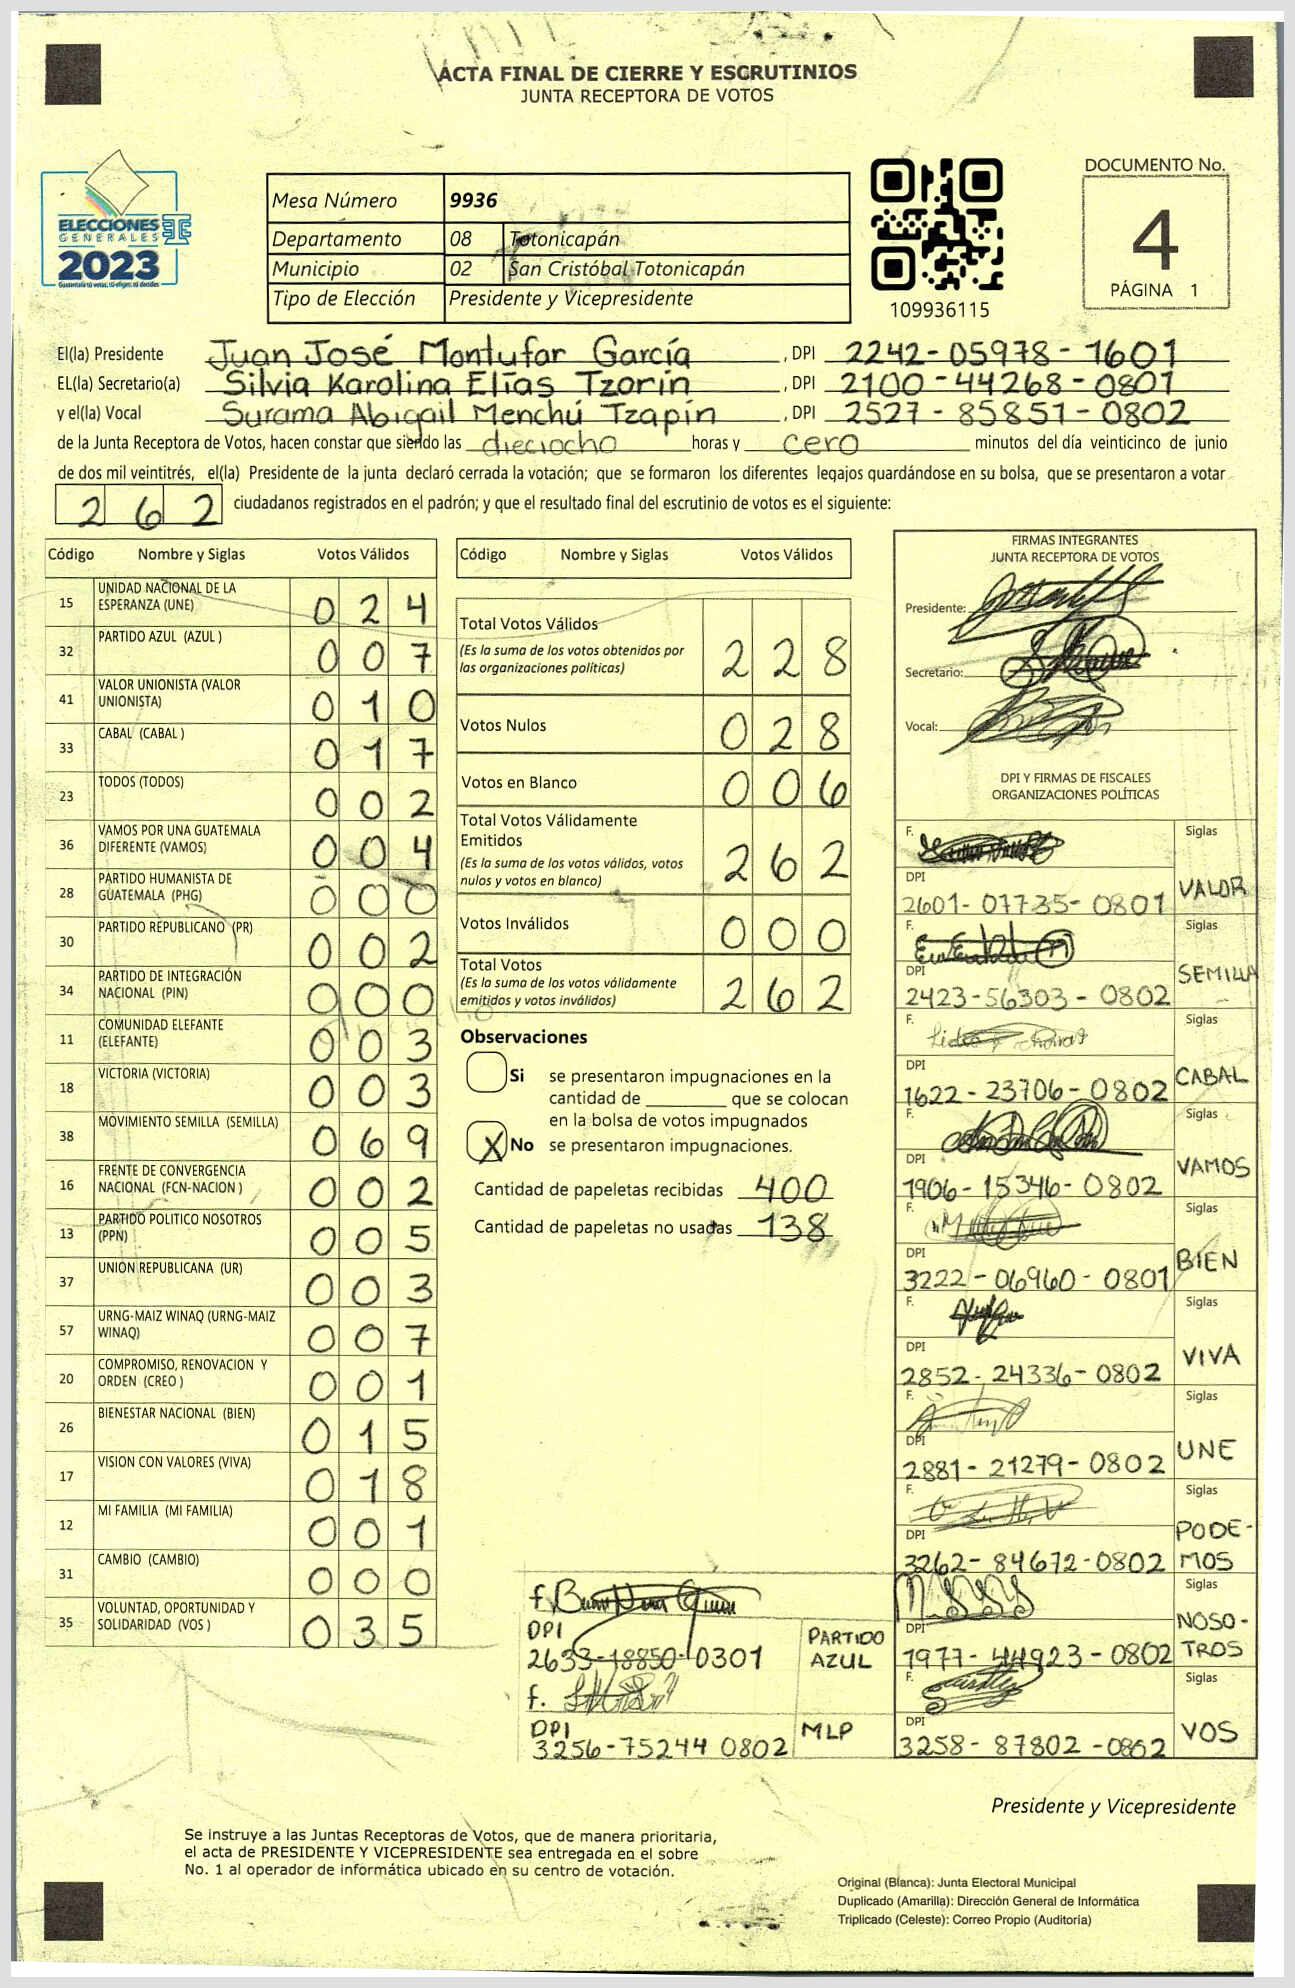 ACTA FINAL DE CIERRE Y ESCRUTINIOS
JUNTA RECEPTORA DE VOTOS
ELECCIONES
GENERALES
2023
Guatemala tú votas, tú eliges, tú decides
Mesa Número 9936
Departamento 08 Totonicapán
Municipio 02 San Cristóbal Totonicapán
Tipo de Elección Presidente y Vicepresidente
109936115
DOCUMENTO No.
4
PÁGINA 1
El(la) Presidente Juan José Montufar García , DPI 2242-05978-1601
EL(la) Secretario(a) Silvia Karolina Elías Tzorín , DPI 2100-44268-0801
y el(la) Vocal Surama Abigail Menchú Tzapín , DPI 2527-85851-0802
de la Junta Receptora de Votos, hacen constar que siendo las dieciocho horas y cero minutos del día veinticinco de junio
de dos mil veintitrés, el(la) Presidente de la junta declaró cerrada la votación; que se formaron los diferentes legajos guardándose en su bolsa, que se presentaron a votar
262 ciudadanos registrados en el padrón; y que el resultado final del escrutinio de votos es el siguiente:
Código Nombre y Siglas Votos Válidos
15 UNIDAD NACIONAL DE LA ESPERANZA (UNE) 024
32 PARTIDO AZUL (AZUL ) 007
41 VALOR UNIONISTA (VALOR UNIONISTA) 010
33 CABAL (CABAL ) 017
23 TODOS (TODOS) 002
36 VAMOS POR UNA GUATEMALA DIFERENTE (VAMOS) 004
28 PARTIDO HUMANISTA DE GUATEMALA (PHG) 000
30 PARTIDO REPUBLICANO (PR) 002
34 PARTIDO DE INTEGRACIÓN NACIONAL (PIN) 000
11 COMUNIDAD ELEFANTE (ELEFANTE) 003
18 VICTORIA (VICTORIA) 003
38 MOVIMIENTO SEMILLA (SEMILLA) 069
16 FRENTE DE CONVERGENCIA NACIONAL (FCN-NACION ) 002
13 PARTIDO POLITICO NOSOTROS (PPN) 005
37 UNIÓN REPUBLICANA (UR) 003
57 URNG-MAIZ WINAQ (URNG-MAIZ WINAQ) 007
20 COMPROMISO, RENOVACION Y ORDEN (CREO ) 001
26 BIENESTAR NACIONAL (BIEN) 015
17 VISION CON VALORES (VIVA) 018
12 MI FAMILIA (MI FAMILIA) 001
31 CAMBIO (CAMBIO) 000
35 VOLUNTAD, OPORTUNIDAD Y SOLIDARIDAD (VOS ) 035
Código Nombre y Siglas Votos Válidos
Total Votos Válidos 228
(Es la suma de los votos obtenidos por
las organizaciones políticas)
Votos Nulos 028
Votos en Blanco 006
Total Votos Válidamente
Emitidos 262
(Es la suma de los votos válidos, votos
nulos y votos en blanco)
Votos Inválidos 000
Total Votos 262
(Es la suma de los votos válidamente
emitidos y votos inválidos)
Observaciones
Si se presentaron impugnaciones en la
cantidad de ________ que se colocan
en la bolsa de votos impugnados
X No se presentaron impugnaciones.
Cantidad de papeletas recibidas 400
Cantidad de papeletas no usadas 138
f.
DPI
2633-18850-0301 PARTIDO AZUL
f.
DPI
3256-75244 0802 MLP
FIRMAS INTEGRANTES
JUNTA RECEPTORA DE VOTOS
Presidente:
Secretario:
Vocal:
DPI Y FIRMAS DE FISCALES
ORGANIZACIONES POLÍTICAS
F. Siglas
DPI
2601-07735-0801 VALOR
F. Siglas
DPI
2423-56303-0802 SEMILLA
F. Siglas
DPI
1622-23706-0802 CABAL
F. Siglas
DPI
1906-15346-0802 VAMOS
F. Siglas
DPI
3222-06960-0801 BIEN
F. Siglas
DPI
2852-24336-0802 VIVA
F. Siglas
DPI
2881-21279-0802 UNE
F. Siglas
DPI
3262-84672-0802 PODE-MOS
Siglas
DPI
1977-44923-0802 NOSO-TROS
F. Siglas
DPI
3258-87802-0802 VOS
Presidente y Vicepresidente
Se instruye a las Juntas Receptoras de Votos, que de manera prioritaria,
el acta de PRESIDENTE Y VICEPRESIDENTE sea entregada en el sobre
No. 1 al operador de informática ubicado en su centro de votación.
Original (Blanca): Junta Electoral Municipal
Duplicado (Amarilla): Dirección General de Informática
Triplicado (Celeste): Correo Propio (Auditoría)